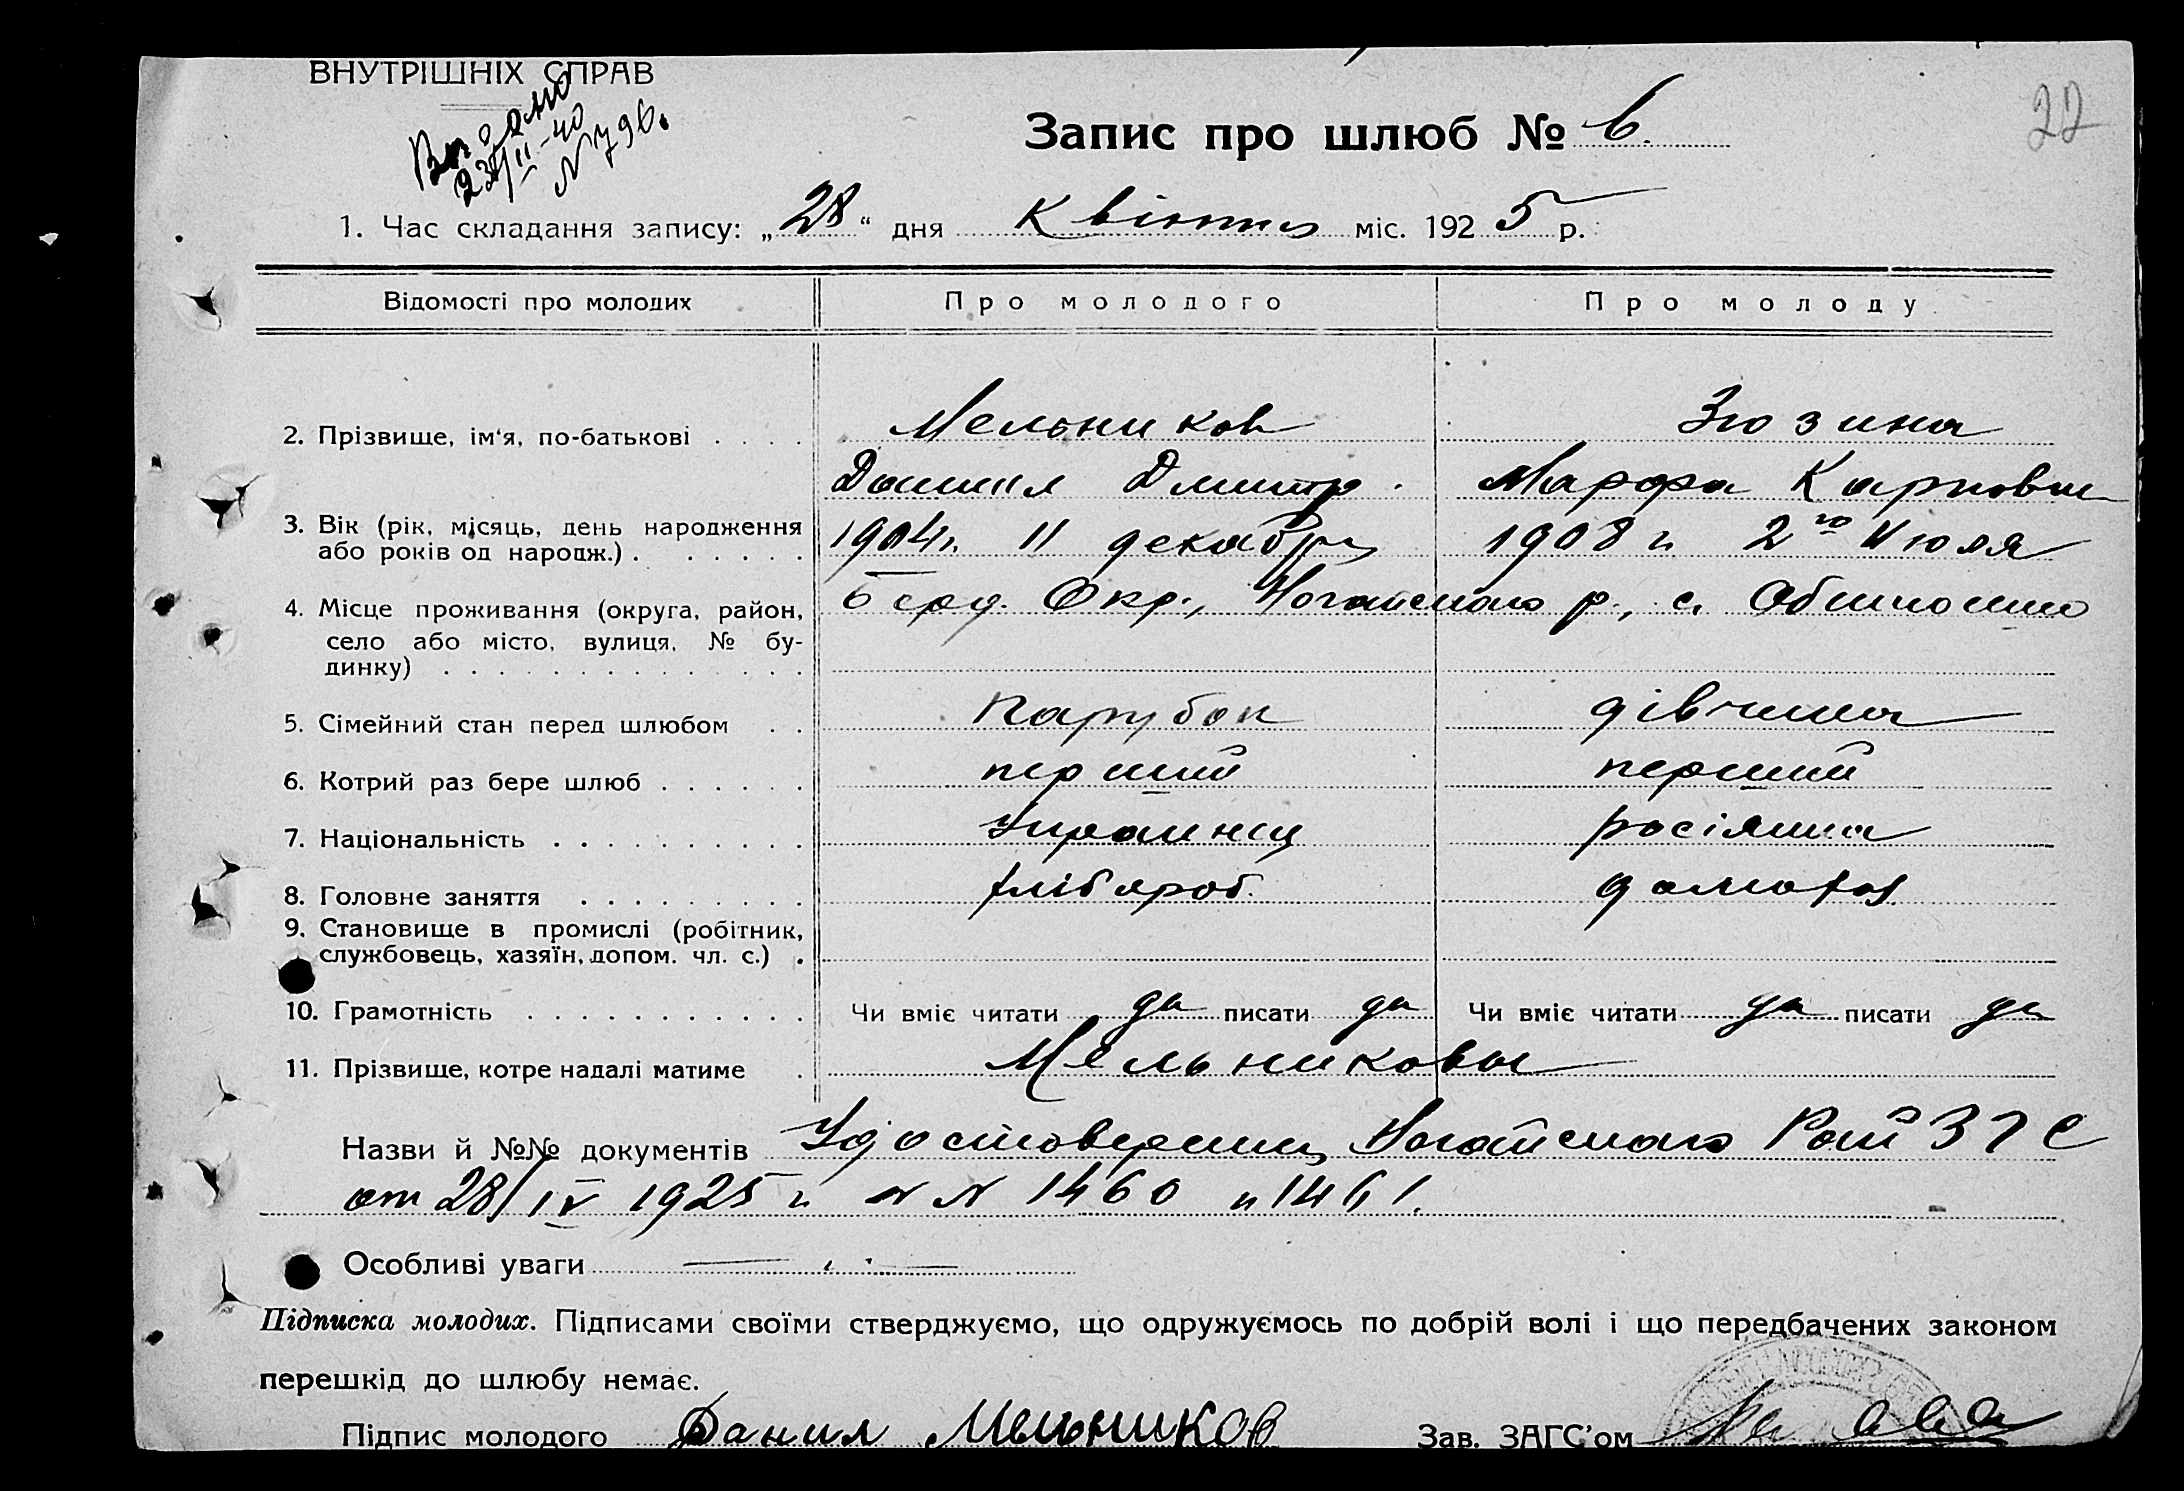 ВНУТРІШНІХ СПРАВ
23/II-40
N 796.
22
Запис про шлюб № 6.
1. Час складання запису: „28“ дня Квітня міс. 1925 р.
Відомості про молодих Про молодого Про молоду
2. Прізвище, ім‘я, по-батькові . . . . Мельников Зюзина
Даниил Дмитр. Марфа Карповна
3. Вік (рік, місяць, день народження 1904 г. 11 декабря 1908 г. 2го Июля
або років од народж.) . . . . . .
4. Місце проживання (округа, район, Берд. Окр., Ногайського р., с.
село або місто, вулиця, № бу-
динку) . . . . . . . . . . . . . .
5. Сімейний стан перед шлюбом . . Парубок дівчина
6. Котрий раз бере шлюб . . . . . . перший перший
7. Національність . . . . . . . . . . Украинец росіянка
8. Головне заняття . . . . . . . . . хлібороб. домохоз
9. Становище в промислі (робітник,
службовець, хазяїн, допом. чл. с.) .
10. Грамотність . . . . . . . . . . . Чи вміє читати да писати да Чи вміє читати да писати да
11. Прізвище, котре надалі матиме . Мельниковы
Назви й №№ документів Удостоверениц Ногайского Рай ЗАГС
от 28/IV 1925 г. N N 1460 и 1461.
Особливі уваги
Підписка молодих. Підписами своїми стверджуємо, що одружуємось по добрій волі і що передбачених законом
перешкід до шлюбу немає.
Підпис молодого Данил Мельников Зав. ЗАГС’ом